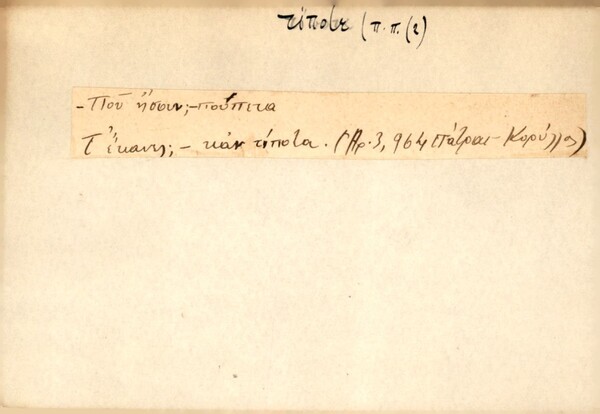 τίποτε (π.π. (2)
- Ποῦ ἤσουν; - πούπιτα
Τ' ἔκανες; - κἀν τίποτα. (Ἀρ. 3, 964 Πάτραι - Κορύλλος)